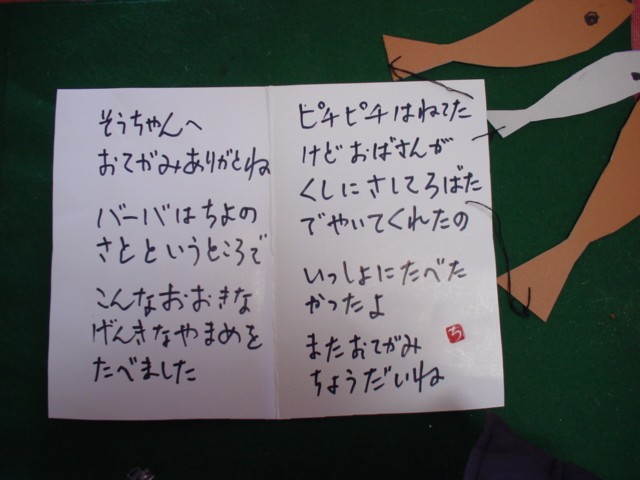 そうちゃんへ
おてがみありがとね
バーバはちよの
さとというところで
こんなおおきな
げんきなやまめを
たべました
ピチピチはねてた
けどおばさんが
くしにさしてろばた
でやいてくれたの
いっしょにたべた
かったよ
またおてがみ
ちょうだいね
ち